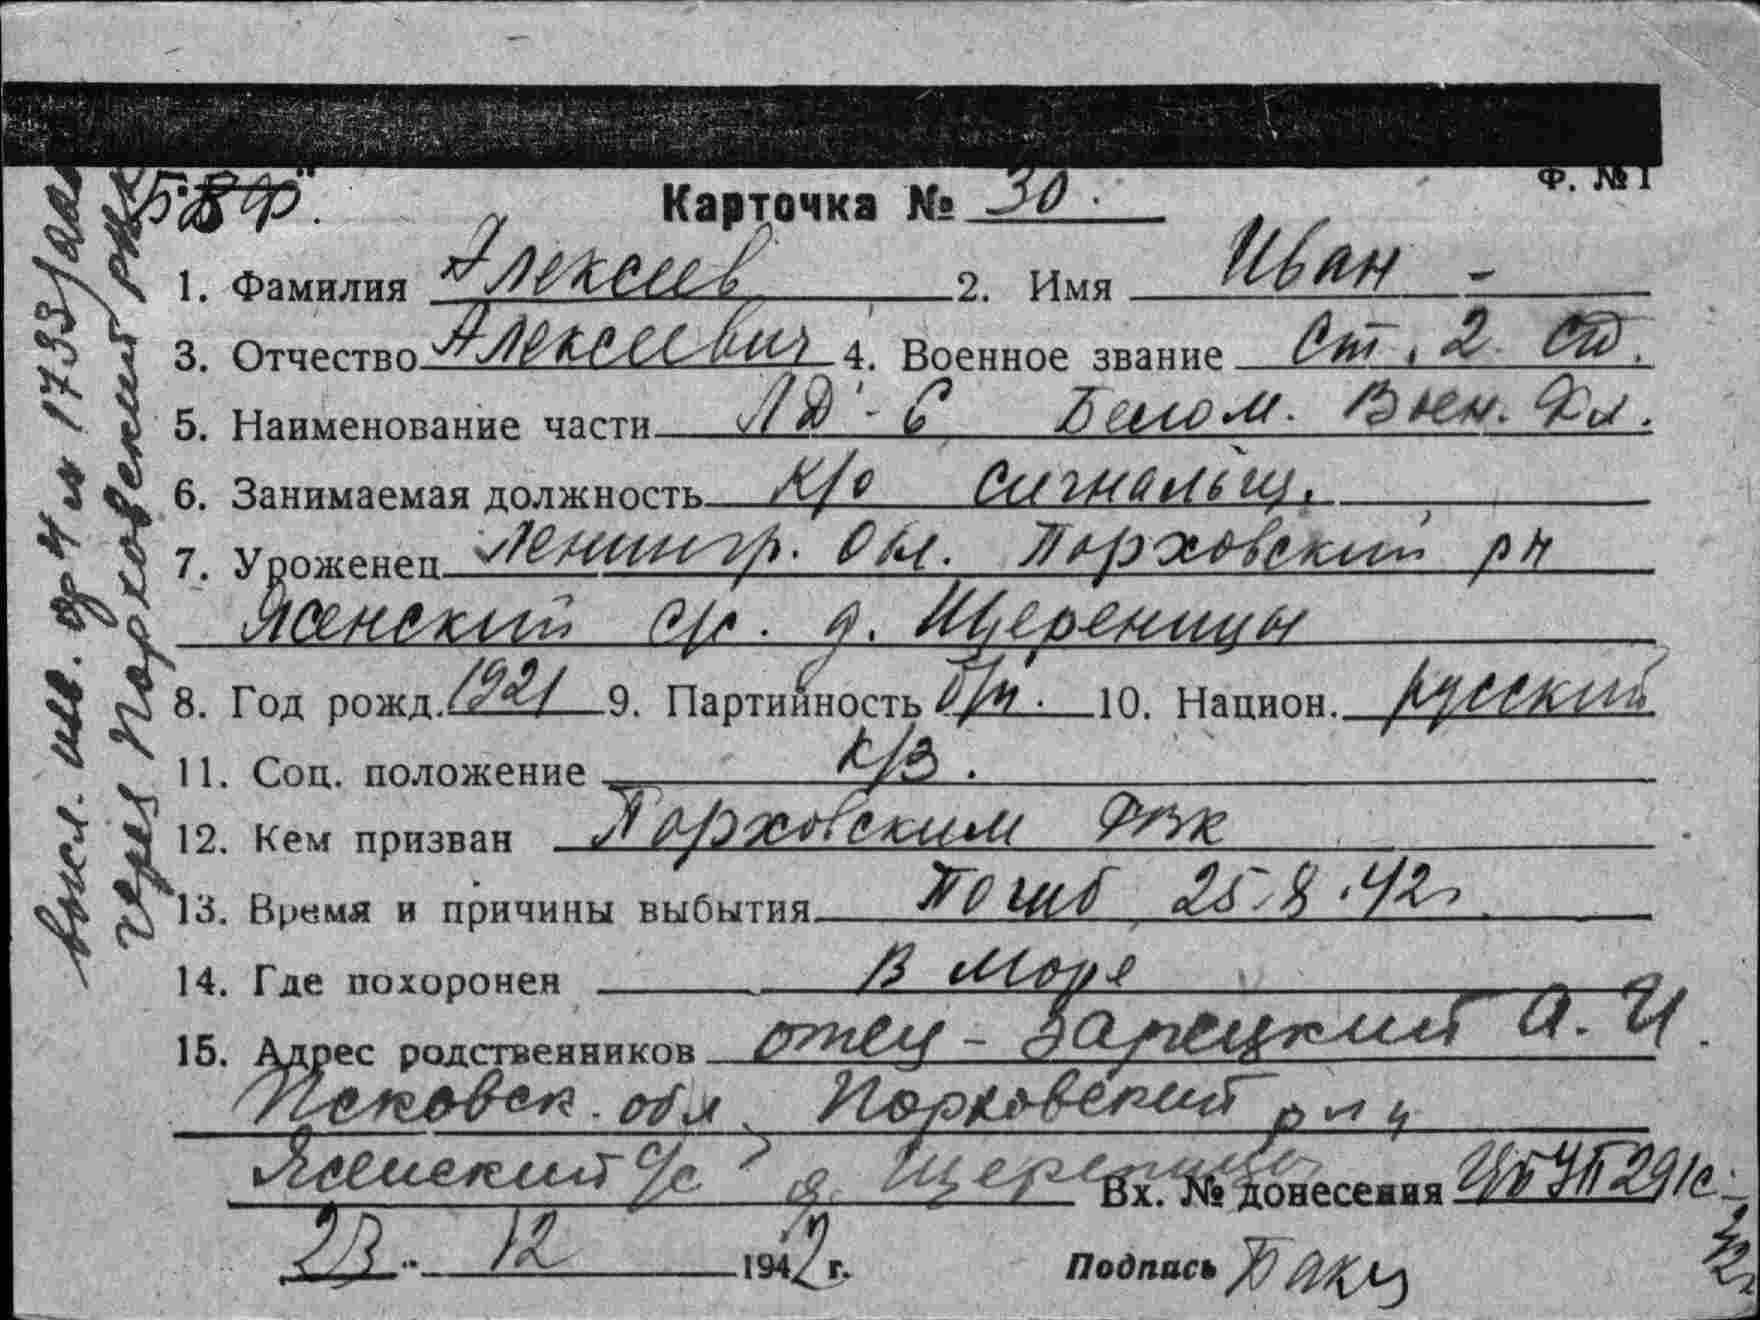 "БВФ".
Ф. №1
Карточка № 30.
1. Фамилия Алексеев 2. Имя Иван -
3. Отчество Алексеевич 4. Военное звание Ст. 2 ст.
5. Наименование части ЛД-6 Белом. Воен. Фл.
6. Занимаемая должность к/о сигнальщ.
7. Уроженец Ленингр. Обл. Порховский рн
Ясенский с/с. д. Щереницы
8. Год рожд. 1921 9. Партийность б/п. 10. Национ. русский
11. Соц. положение к/з.
12. Кем призван Порховским РВК
13. Время и причины выбытия Погиб 25.8.42г.
14. Где похоронен В море
15. Адрес родственников отец - Зарецкий А. И.
Псковск. обл, Порховский р-н
Ясенский с/с д. Щереницы
Вх. № донесения 291с
23. 12 1942 г. Подпись
через Порховский